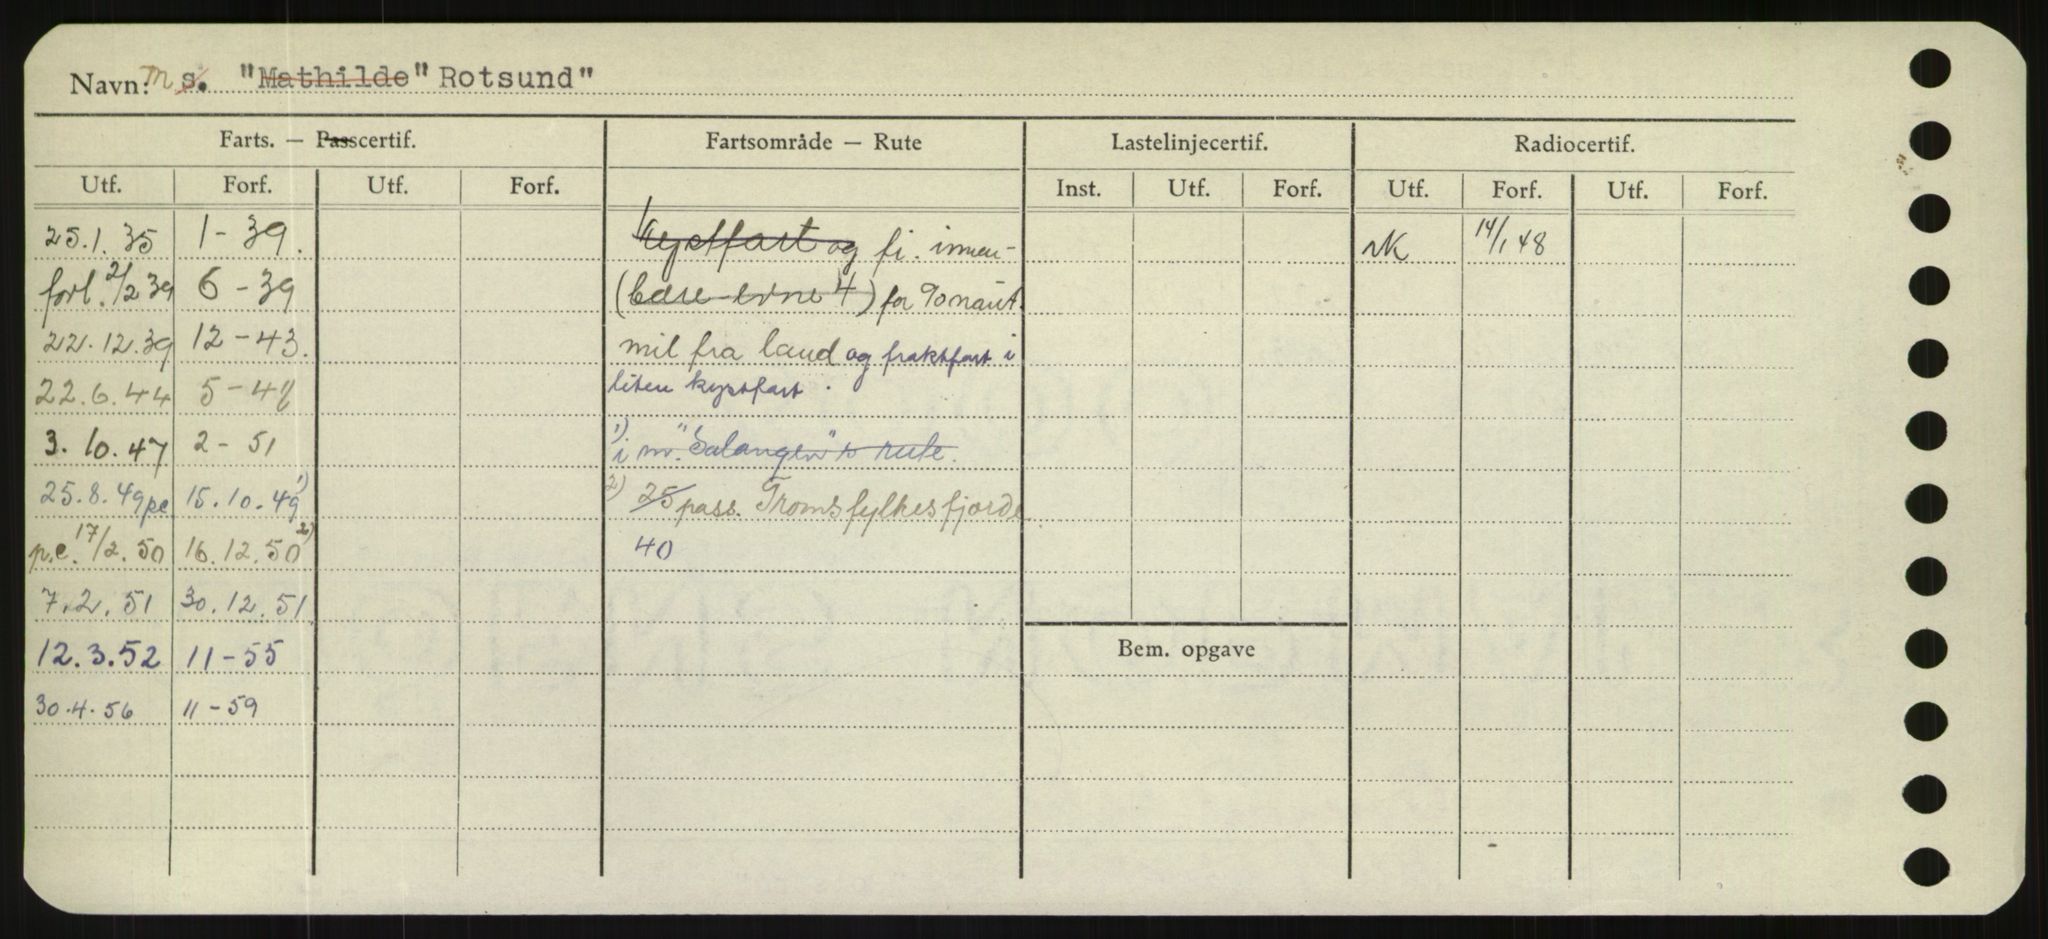 Navn: M s. "Mathilde" Rotsund"
Farts. — Passcertif. Fartsområde — Rute Lastelinjecertif. Radiocertif.
Utf. Forf. Utf. Forf. Inst. Utf. Forf. Utf. Forf. Utf. Forf.
25.1.35 1-39. Kystfart og fi. innen- NK 14/1 48
forl. 2/2 39 6-39 (bære-evne 4) for 90 naut.
22.12.39 12-43. mil fra land og fraktfart i
22.6.44 5-48 liten kystfart.
3.10.47 2-51 1) i nv. "Salangen"s rute.
25.8.49 pc 15.10.49 1) 2) 25 pass. Troms fylkes fjorde
p.c. 17/2.50 16.12.50 2) 40
7.2.51 30.12.51
12.3.52 11-55 Bem. opgave
30.4.56 11-59